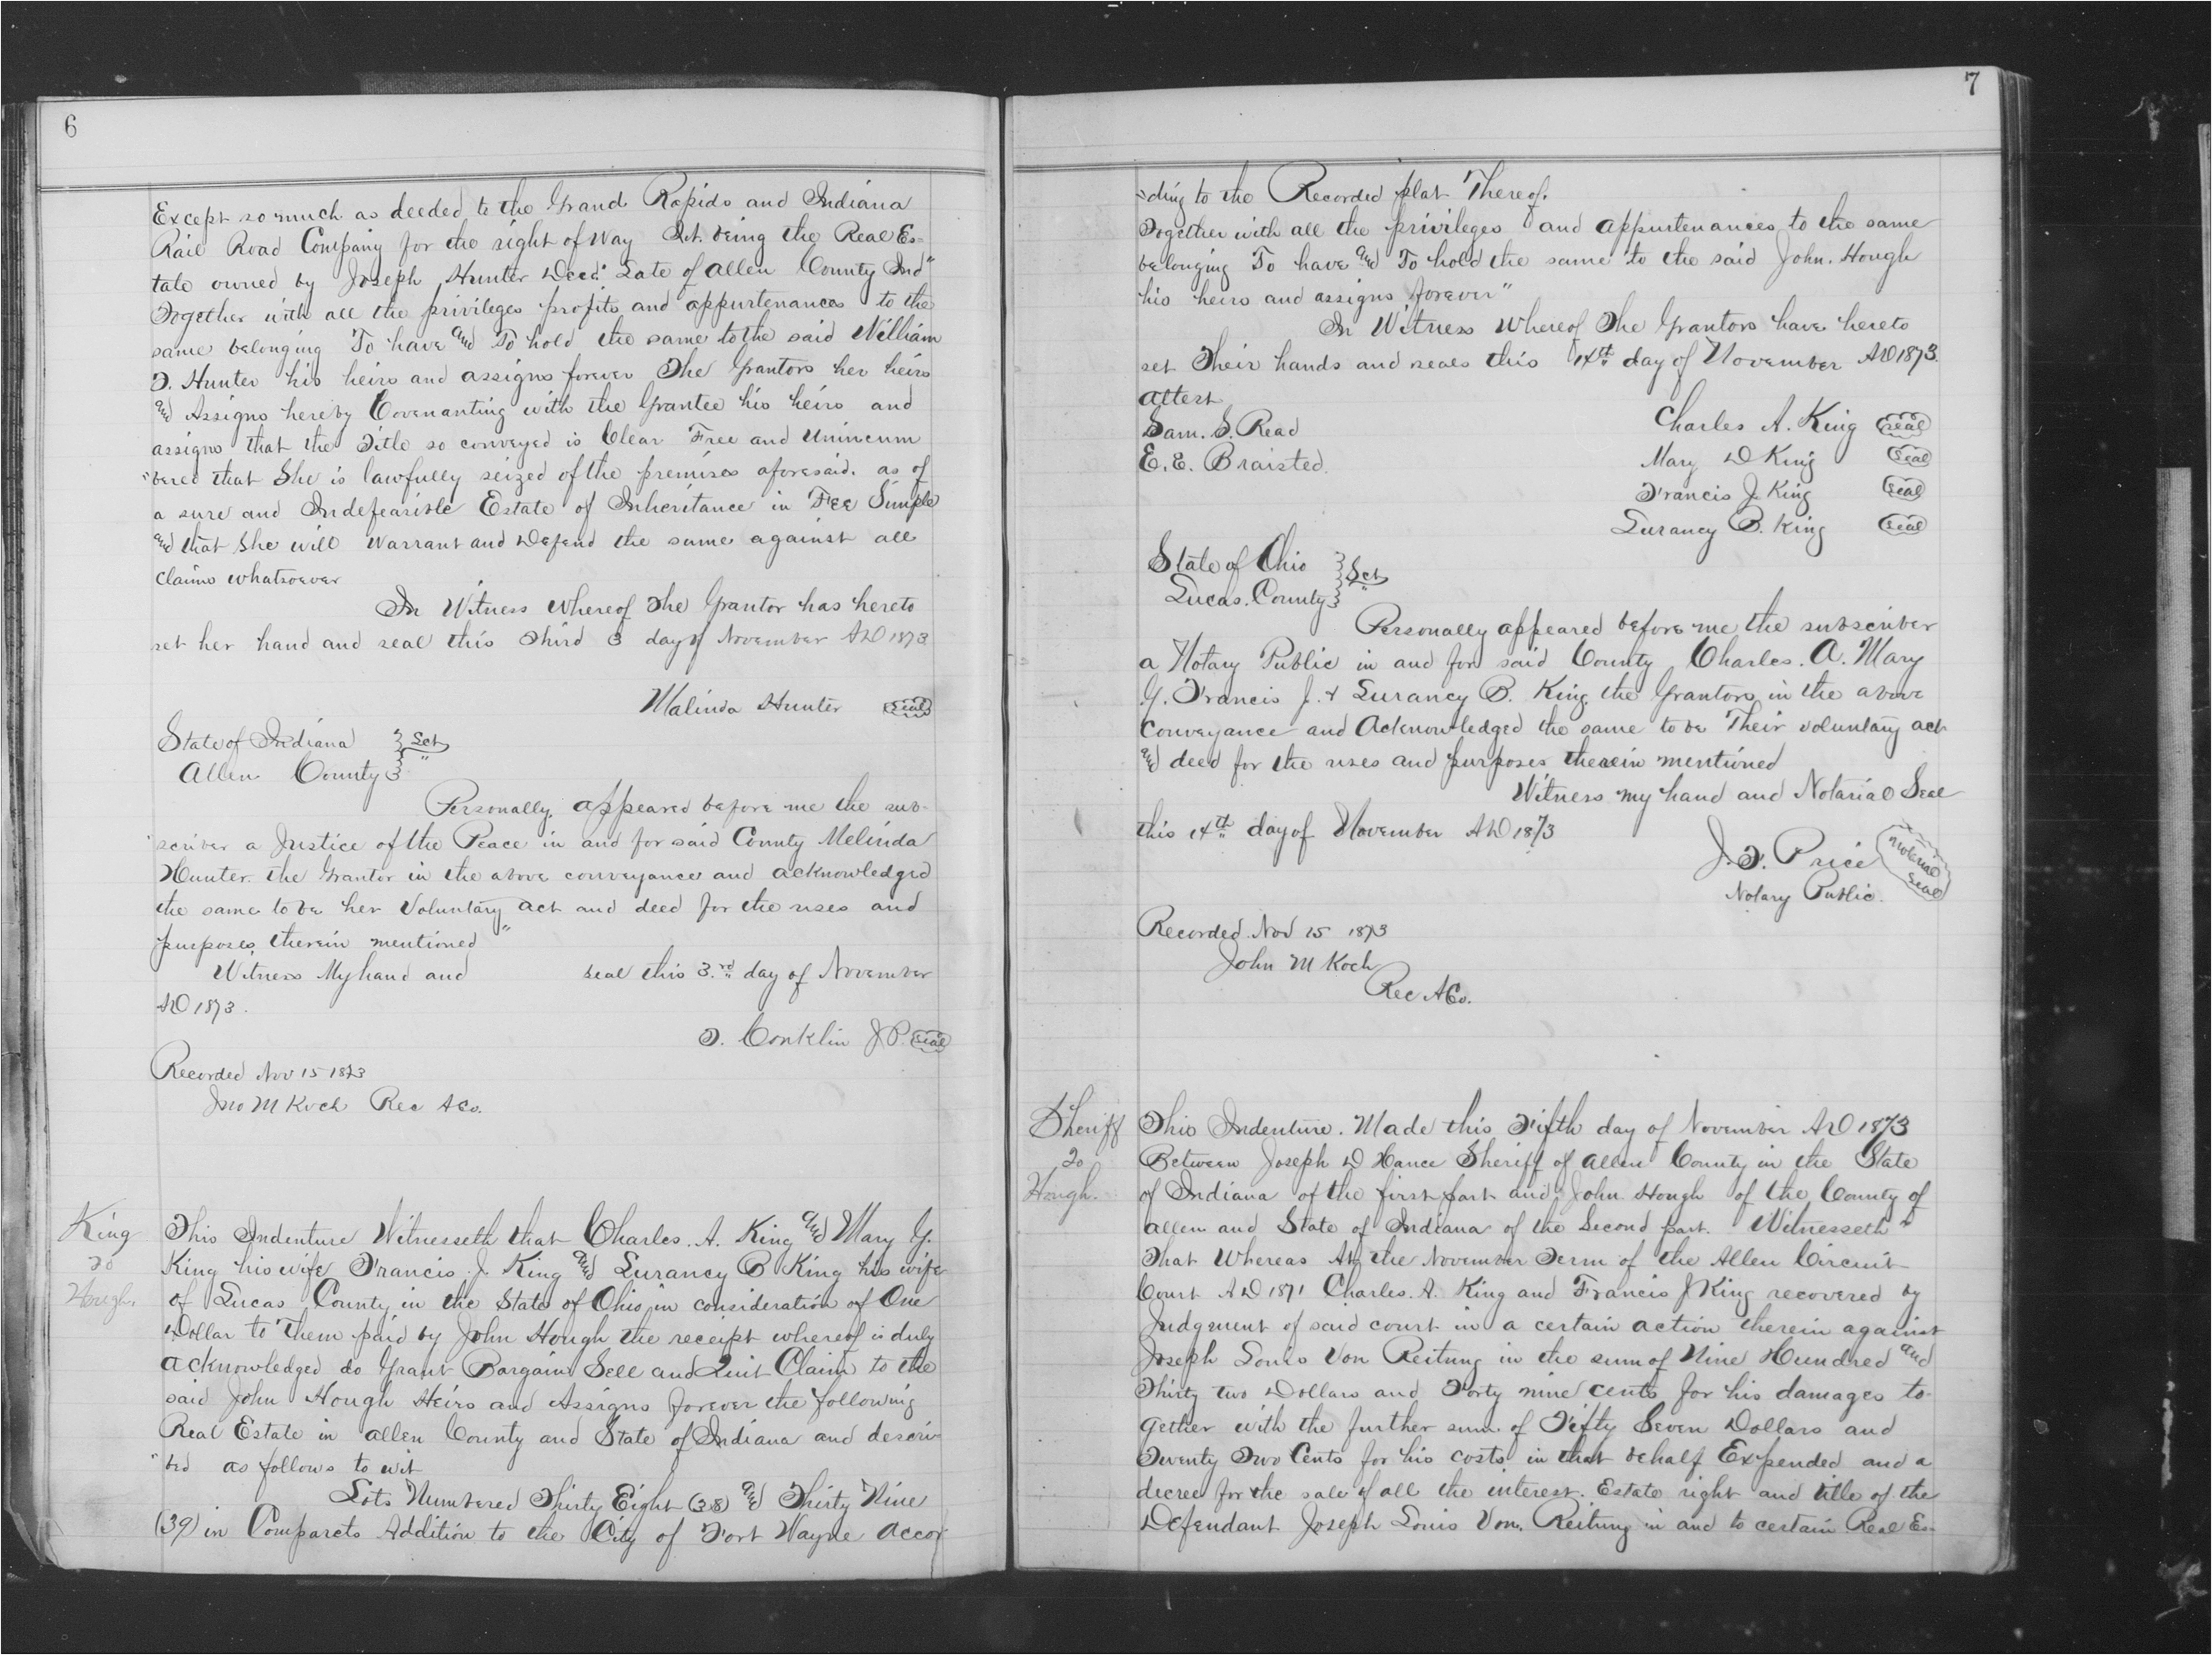 6
Except so much as deeded to the Grand Rapids and Indiana
Rail Road Company for the right of way &ct. being the Real Es=
tate owned by Joseph Hunter Decd. Late of Allen County Ind"
Together with all the privileges profits and appurtenances to the
same belonging To have and To hold the same to the said William
T. Hunter his heirs and assigns forever The Grantors her heirs
and Assigns hereby Covenanting with the Grantee his heirs and
assigns that the Title so conveyed is Clear Free and Unincum
"bered that She is lawfully seized of the premises aforesaid. as of
a sure and Indefeasible Estate of Inheritance in Fee Simple
and that She will Warrant and Defend the same against all
claims whatsoever
In Witness Whereof The Grantor has hereto
set her hand and seal this Third 3 day of November AD 1873
Malinda Hunter Seal
State of Indiana } Sct
Allen County }
Personally appeared before me the sub-
scriber a Justice of the Peace in and for said County Melinda
Hunter. the Grantor in the above conveyance and acknowledged
the same to be her Voluntary act and deed for the uses and
purposes therein mentioned"
Witness My hand and seal this 3rd day of November
AD 1873.
T. Conklin J.P. Seal
Recorded Nov 15 1873
Jno M Koch Rec A Co.
King
to
Hough.
This Indenture Witnesseth that Charles. A. King and Mary G.
King his wife Francis J. King and Lurancy B King his wife
of Lucas County in the State of Ohio in consideration of One
Dollar to Them paid by John Hough the receipt whereof is duly
acknowledged do Grant Bargain Sell and Quit Claim to the
said John Hough Heirs and Assigns forever the following
Real Estate in Allen County and State of Indiana and descri-
"bed as follows to wit
Lots Numbered Thirty Eight (38) and Thirty Nine
(39) in Comparets Addition to the City of Fort Wayne accor
7
"ding to the Recorded plat Thereof.
Together with all the privileges and appurtenances to the same
belonging To have and To hold the same to the said John. Hough
his heirs and assigns forever"
In Witness Whereof The Grantors have hereto
set Their hands and seals this 14th day of November AD 1873.
Attest
Charles A. King Seal
Sam. S. Read
Mary D King Seal
E. E. Braisted.
Francis J. King Seal
Lurancy B. King Seal
State of Ohio } Sct
Lucas. County }
Personally appeared before me the subscriber
a Notary Public in and for said County Charles. A. Mary
G. Francis J. & Lurancy B. King. the Grantors in the above
Conveyance and Acknowledged the same to be Their voluntary act
and deed for the uses and purposes therein mentioned
Witness my hand and Notarial Seal
this 14th day of November AD 1873
J. T. Price Notarial Seal
Notary Public.
Recorded Nov 15 1873
John M Koch
Rec A Co.
Sheriff
to
Hough.
This Indenture. Made this Fifth day of November AD 1873
Between Joseph D Hance Sheriff of Allen County in the State
of Indiana of the first part and John Hough of the County of
Allen and State of Indiana of the Second part. Witnesseth"
That Whereas At the November Term of the Allen Circuit
Court AD 1871 Charles. A. King and Francis J King recovered by
Judgment of said court in a certain action therein against
Joseph Louis Von Reitung in the sum of Nine Hundred and
Thirty two Dollars and Forty nine cents for his damages to-
gether with the further sum. of Fifty Seven Dollars and
Twenty Two Cents for his costs in that behalf Expended and a
decree for the sale of all the interest. Estate right and title of the
Defendant Joseph Louis Von. Reitung in and to certain Real Es-